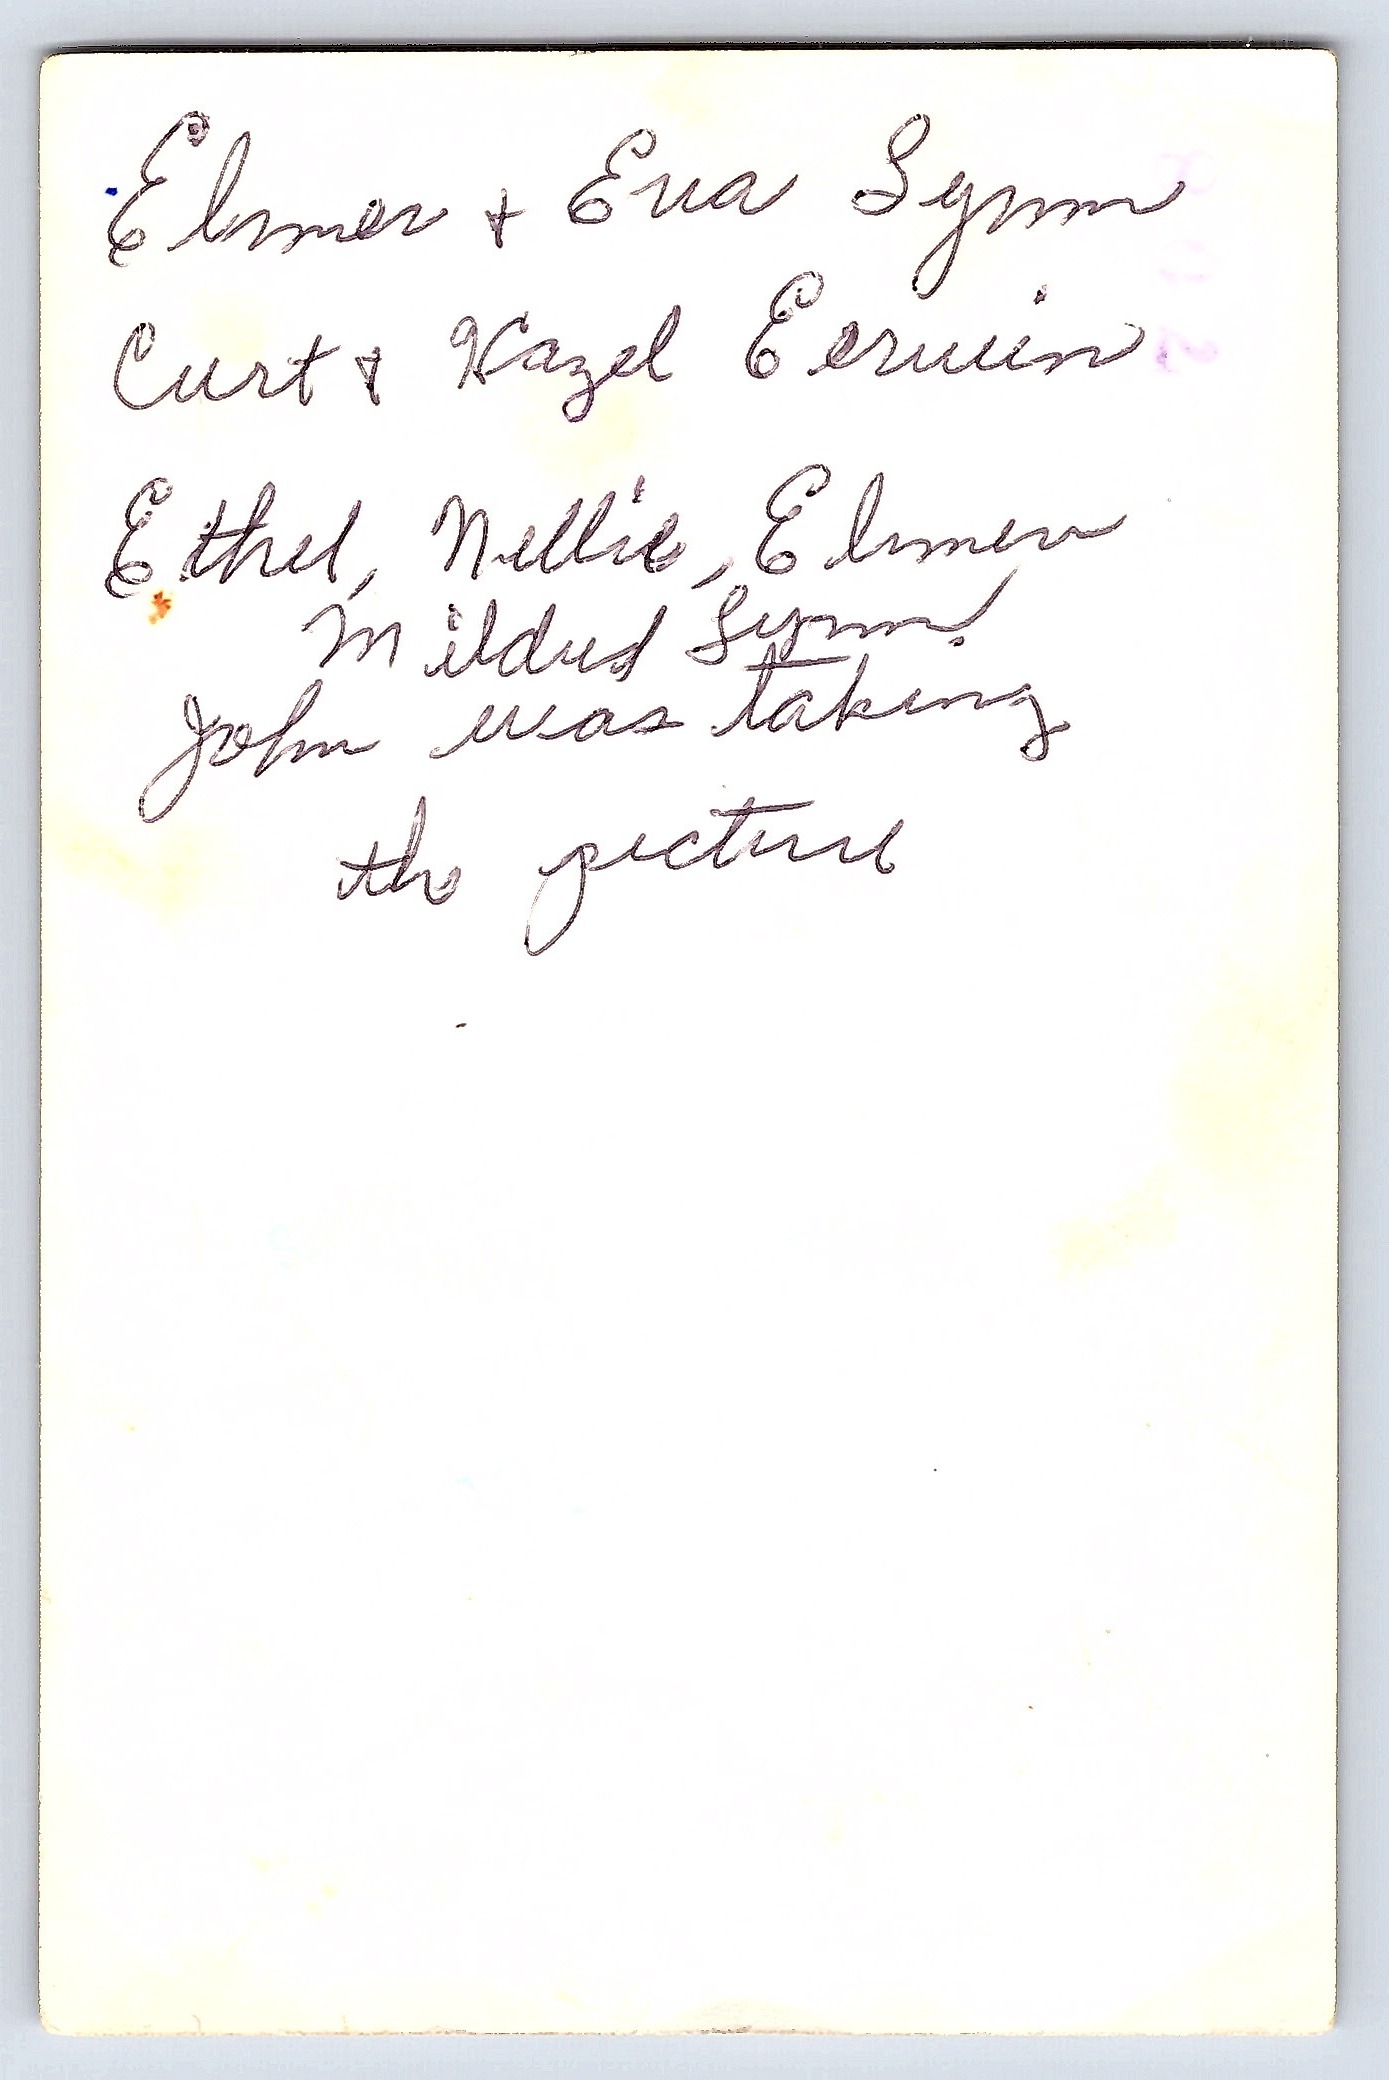 Elmer + Eva Lynn
Curt + Hazel Eerwin
Ethel, Nellie, Elmer
Mildred Lynn.
John was taking
the picture